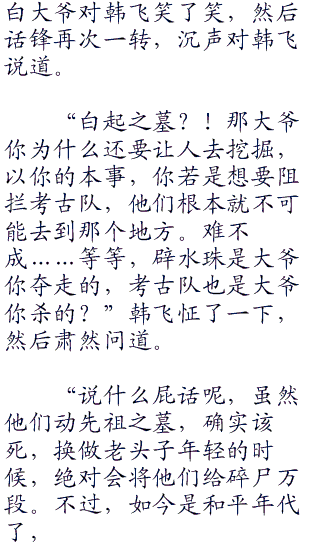 白大爷对韩飞笑了笑，然后
话锋再次一转，沉声对韩飞
说道。
“白起之墓？！那大爷
你为什么还要让人去挖掘，
以你的本事，你若是想要阻
拦考古队，他们根本就不可
能去到那个地方。难不
成……等等，辟水珠是大爷
你夺走的，考古队也是大爷
你杀的？”韩飞怔了一下，
然后肃然问道。
“说什么屁话呢，虽然
他们动先祖之墓，确实该
死，换做老头子年轻的时
候，绝对会将他们给碎尸万
段。不过，如今是和平年代
了，